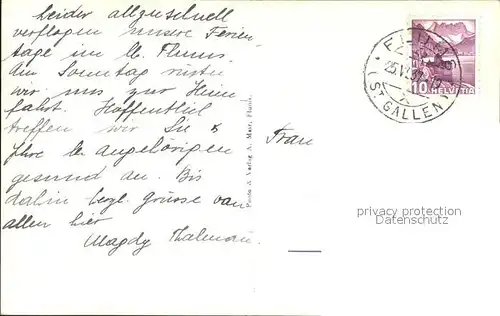 Leider allzuschnell
verflogen unsere Ferien-
tage im lb. Flums.
Am Sonntag rüsten
wir uns zur Heim
fahrt. Hoffentlich
treffen wir Sie &
Ihre lb. Angehörigen
gesund an. Bis
dahin herzl. Grüsse von
allen hier
Magdy
Photo & Verlag A. Flums.
Frau
FLUMS
(ST. GALLEN)
10 HELVETIA
privacy protection
Datenschutz